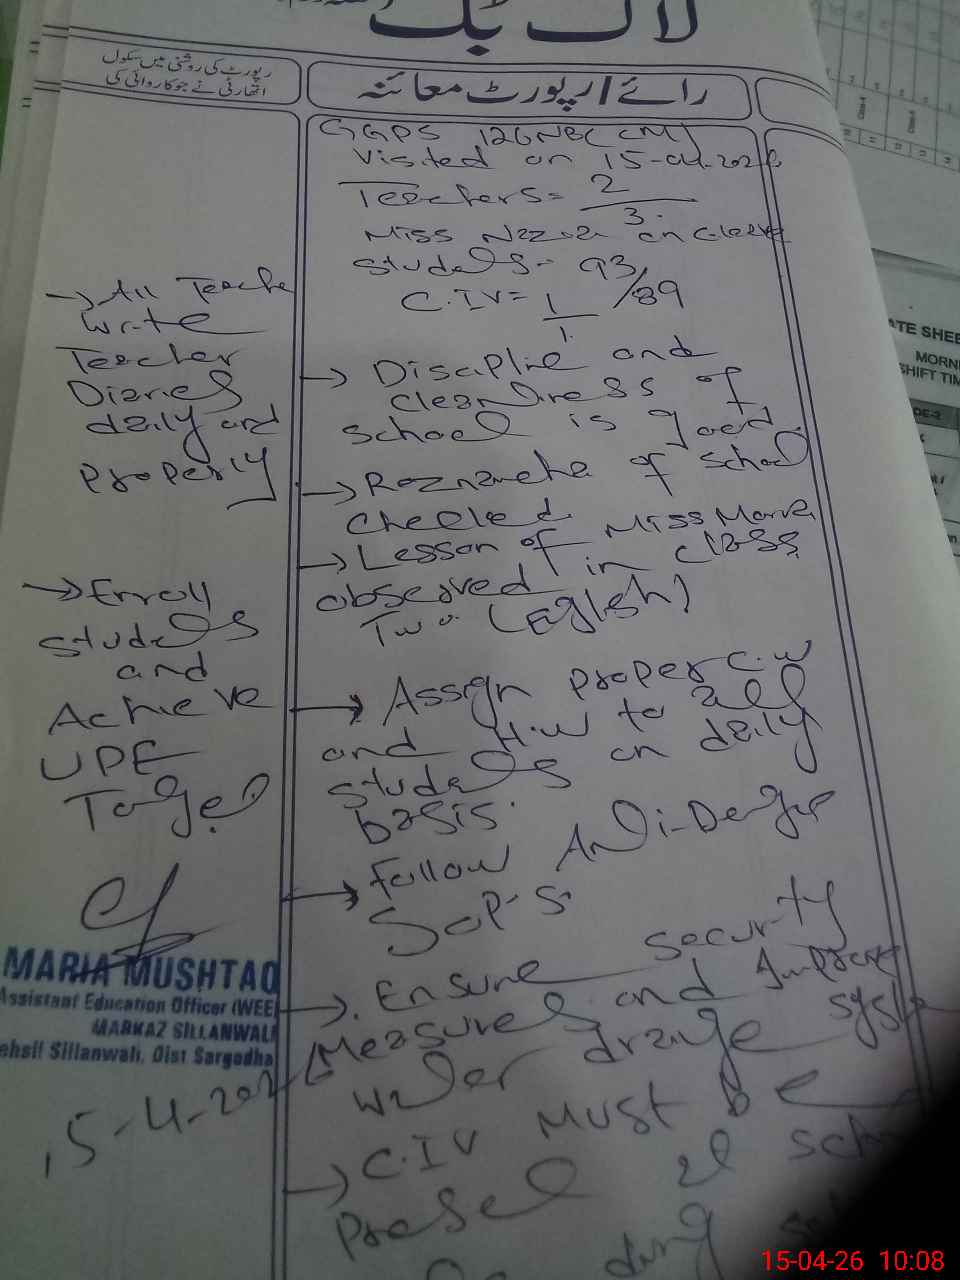 لاگ بک
رپورٹ کی روشنی میں سکول
اتھارٹی نے جو کاروائی کی
رائے / رپورٹ معائنہ
GGPS 126NB(CM)
Visited on 15-04-2026
Teachers = 2/3
Miss on leave
Students = 93/89
C.IV = 1/1
→ Discipline and
cleanliness of
school is good.
→ Roznamcha of school
checked.
→ Lesson of Miss
observed in class
Two. (English)
→ Assign proper c.w
and H.w to all
students on daily
basis.
→ Follow Anti-Dengue
SOP's.
→ Ensure security
Measures and Improve
water drainage system
→ C.IV Must be
Present at school
during
→ All Teacher
write
Teacher
Diaries
daily and
properly
→ Enroll
students
and
Achieve
UPE
Target
MARIA MUSHTAQ
Assistant Education Officer (WEE)
MARKAZ SILLANWALI
ehsil Sillanwali, Dist Sargodha
15-4-2026
ATE SHEE
MORNI
SHIFT TIM
DE-2
15-04-26 10:08